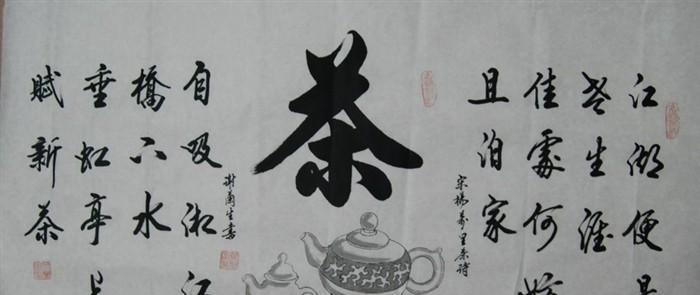 江湖便是
老生涯
佳處何妨
且泊家
宋楊萬里茶詩
茶
謝蘭生書
自汲淞江
橋下水
垂虹亭上
賦新茶